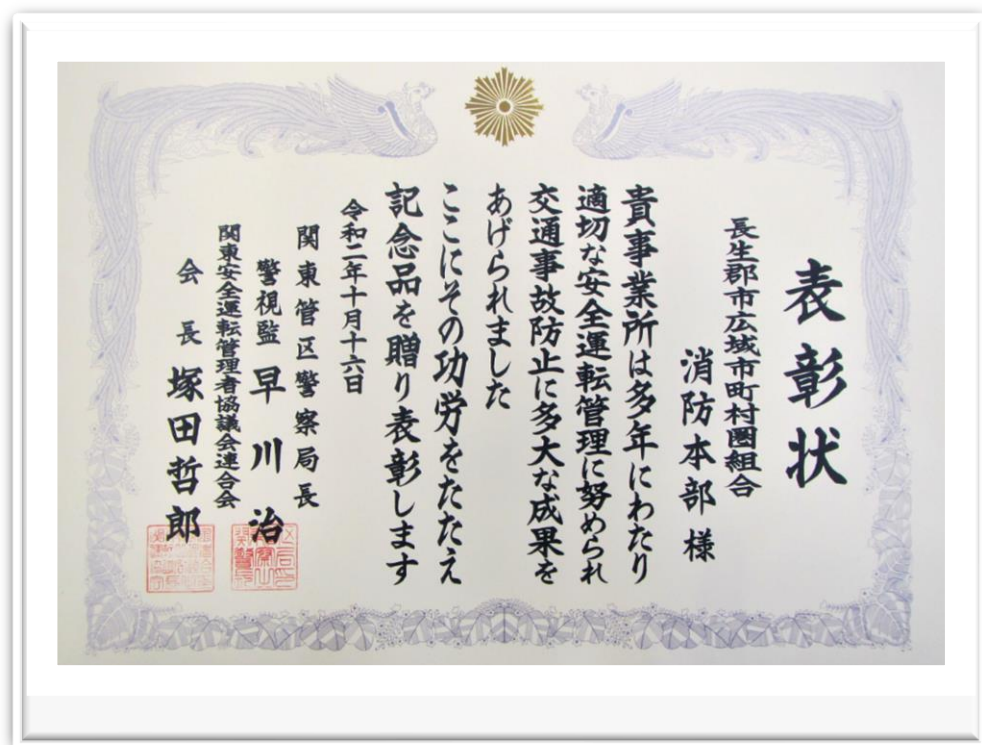 表彰状
長生郡市広域市町村圏組合
消防本部様
貴事業所は多年にわたり
適切な安全運転管理に努められ
交通事故防止に多大な成果を
あげられました
ここにその功労をたたえ
記念品を贈り表彰します
令和二年十月十六日
関東管区警察局長
警視監 早川 治
関東安全運転管理者協議会連合会
会長 塚田哲郎